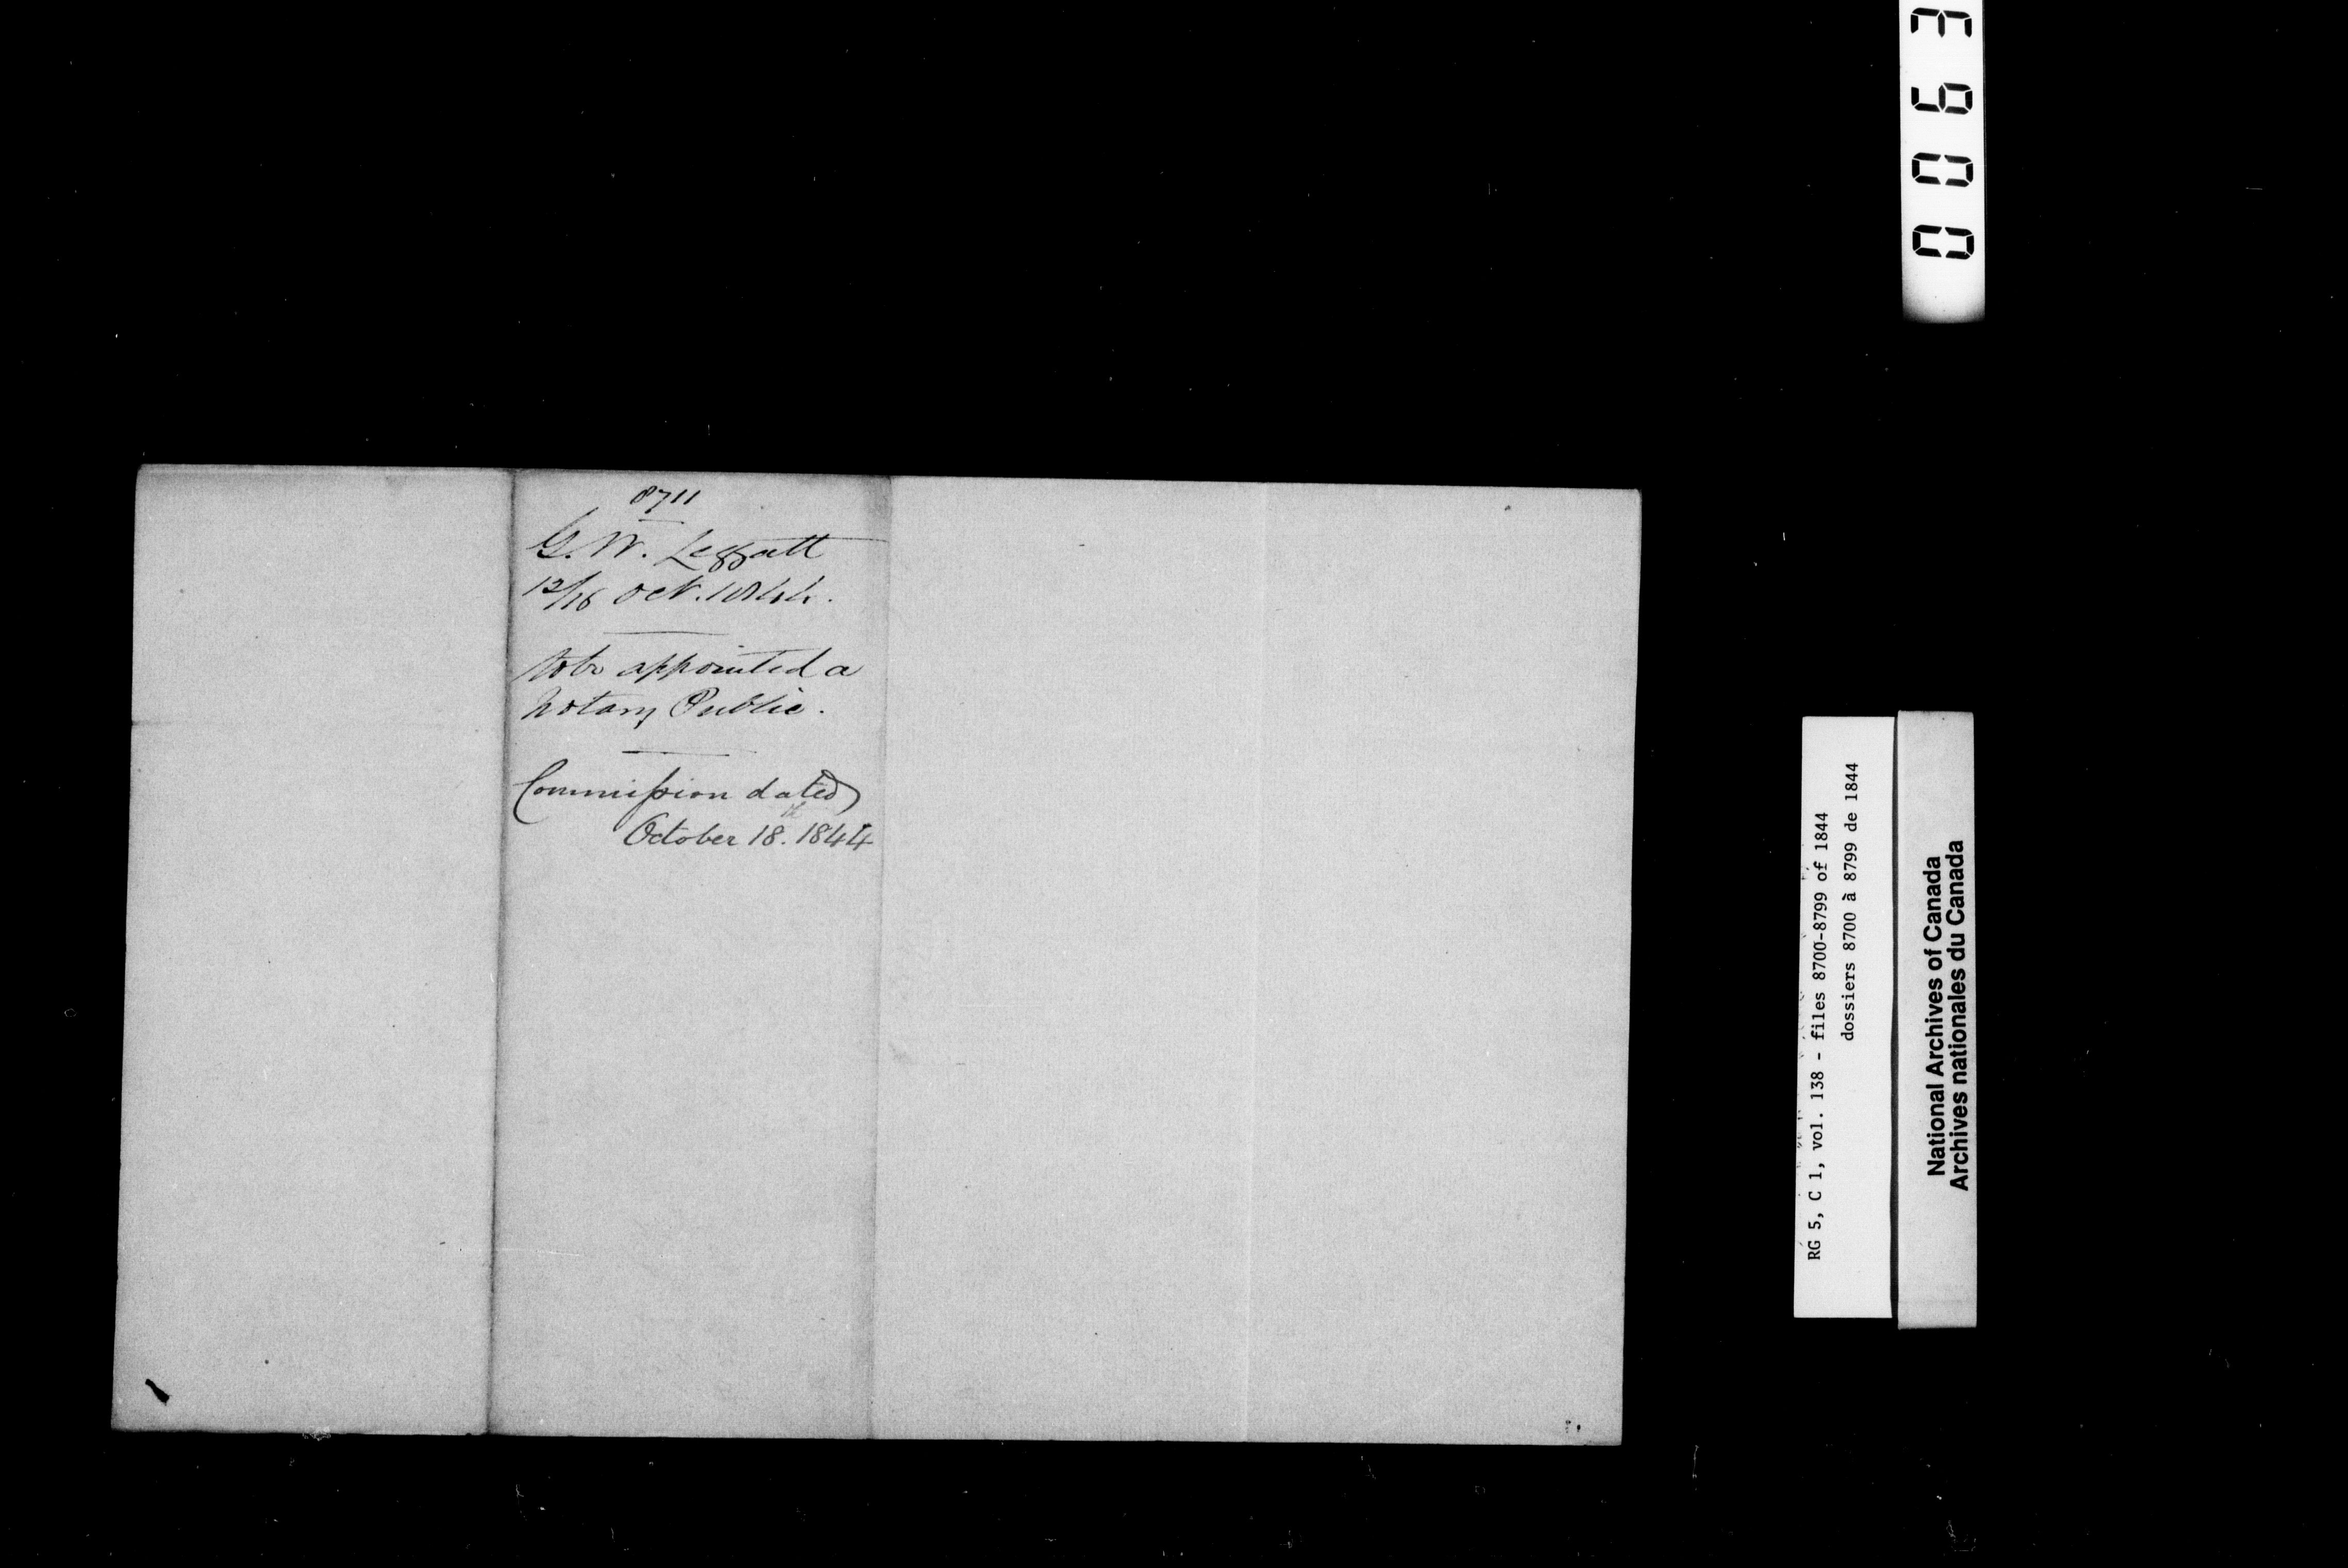 8711
G. W. Leggatt
12/16 Oct. 1844.
to be appointed a
Notary Public.
Commission dated
October 18th. 1844
0063
RG 5, C 1, vol. 138 - files 8700-8799 of 1844
dossiers 8700 à 8799 de 1844
National Archives of Canada
Archives nationales du Canada